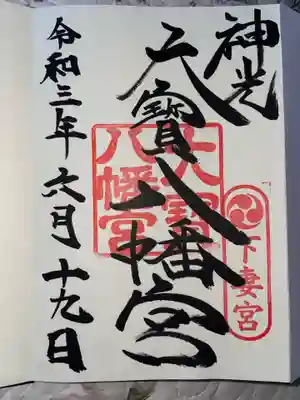 神光
大寳八幡宮
大寳八幡宮
下妻宮
令和三年六月十九日